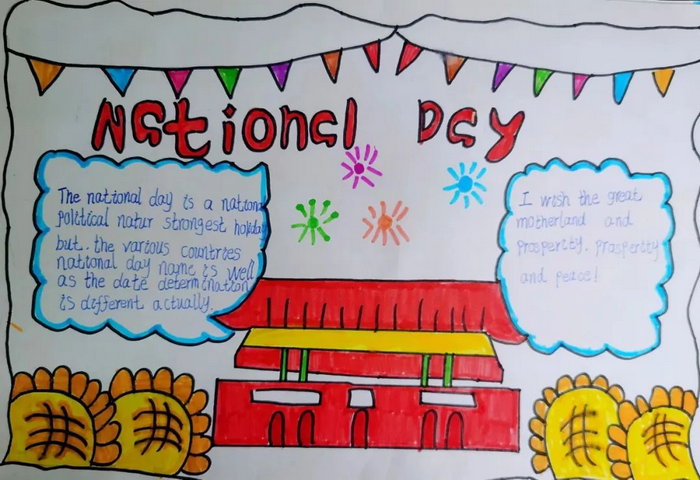 National Day
The national day is a nationa
political natur strongest holiday
but. the various countries
national day name is well
as the date determination
is different actually.
I wish the great
motherland and
prosperity. prosperity
and peace!